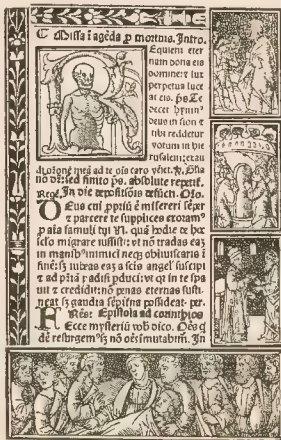 Missa ī agēda p mortuis. Intro.
Requiem eter
nam dona eis
domine: et lux
perpetua luce
at eis. ps̄. Te
decet hymn⁹
deus in sion et
tibi reddetur
votum in hie
rusalem: exau
di orōnē meā ad te oīs caro veniet.
no dr̄: sed finito ps̄. absolute repetit̄
Req̄. In die depositiōis defūcti. Oīo.
Deus cui ppriū ē misereri semp̄
et parcere te supplices exoram⁹
p aīa famuli tui N. quā hodie de hoc
seclo migrare iussisti: ut nō tradas eaz
in man⁹ inimici neqꝫ obliuiscaris ī
finē: sꝫ iubeas eaz a scis angel̄ suscipi
et ad priā padisi pduci: ut qr in te spa
uit et credidit: nō penas eternas susti
neat sꝫ gaudia sēpitna possideat. per.
Frēs: Epistola ad corinthios
Ecce mysteriū vob̄ dico. Oēs qdē
dē resurgem⁹ sꝫ nō oēs imutabim̄. In